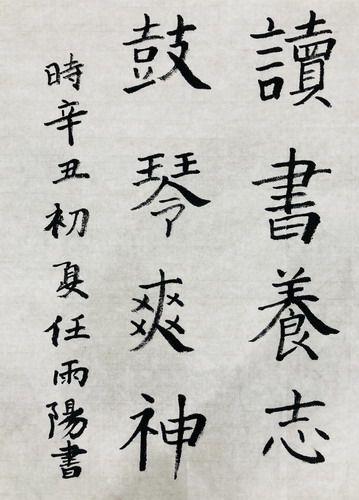 讀書養志
鼓琴爽神
時辛丑初夏任雨陽書